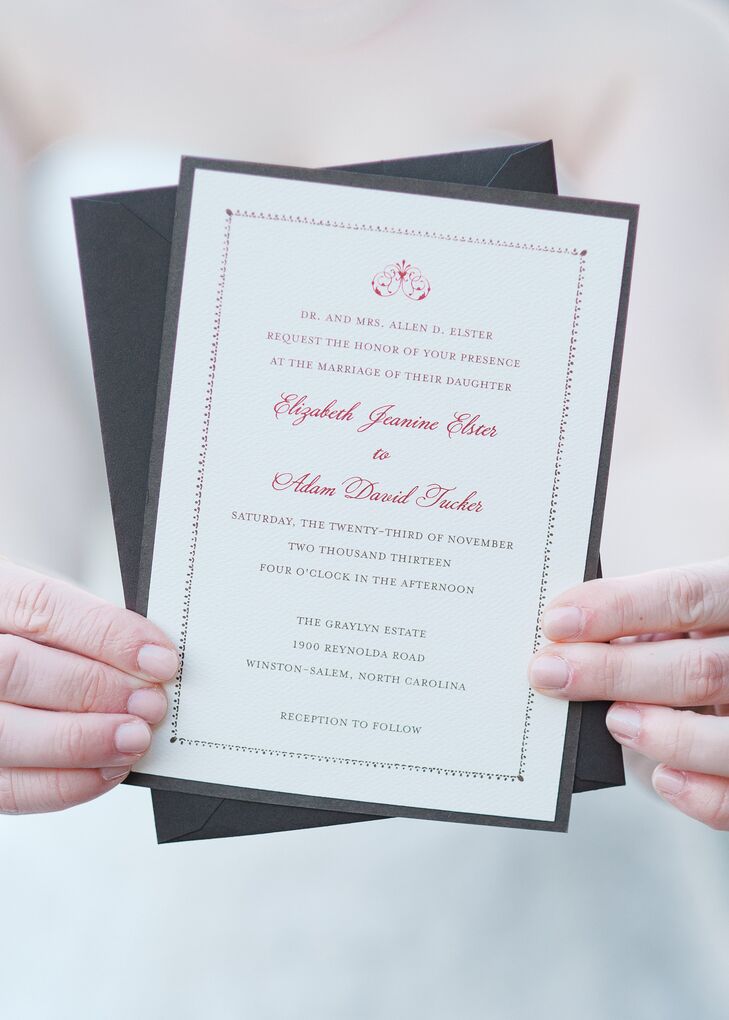 DR. AND MRS. ALLEN D. ELSTER
REQUEST THE HONOR OF YOUR PRESENCE
AT THE MARRIAGE OF THEIR DAUGHTER
Elizabeth Jeanine Elster
to
Adam David Tucker
SATURDAY, THE TWENTY-THIRD OF NOVEMBER
TWO THOUSAND THIRTEEN
FOUR O'CLOCK IN THE AFTERNOON
THE GRAYLYN ESTATE
1900 REYNOLDA ROAD
WINSTON-SALEM, NORTH CAROLINA
RECEPTION TO FOLLOW